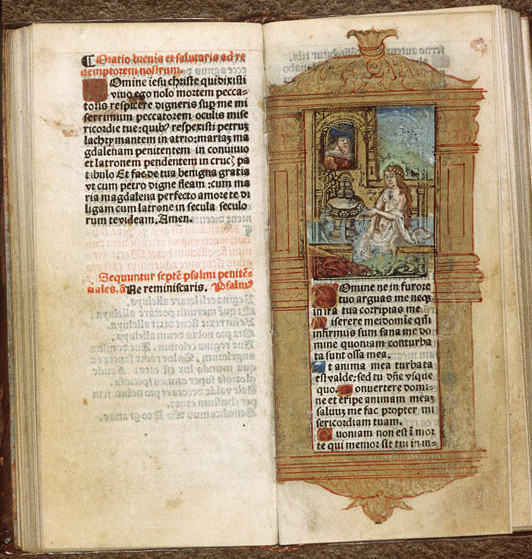 Oratio brevis et salutaris ad re
demptorem nostrum.
Domine iesu christe qui dixisti
vivo ego nolo mortem pecca-
toris respicere digneris sup me mi
serrimum peccatorem oculis mise
ricordie tue: quibꝰ respexisti petrū
lachrymantem in atrio: mariā ma
gdalenam penitentem in conuiuio
et latronem pendentem in crucꝭ pa
tibulo Et fac de tua benigna gratia
vt cum petro digne fleam: cum ma
ria magdalena perfecto amore te di
ligam cum latrone in secula seculo
rum te videam, Amen.
Sequuntur septē psalmi peniten-
tiales. añ Ne reminiscaris. Psalmꝰ
Domine ne in furore
tuo arguas me neqꝫ
in ira tua corripias me.
Miserere mei domine qm̄
infirmus sum sana me do
mine quoniam conturba
ta sunt ossa mea.
Et anima mea turbata
est valde: sed tu dn̄e vsque
quo. Conuertere domi-
ne et eripe animam meaꝫ
saluū me fac propter mi
sericordiam tuam.
Quoniam non est ī mor
te qui memor sit tui in in-